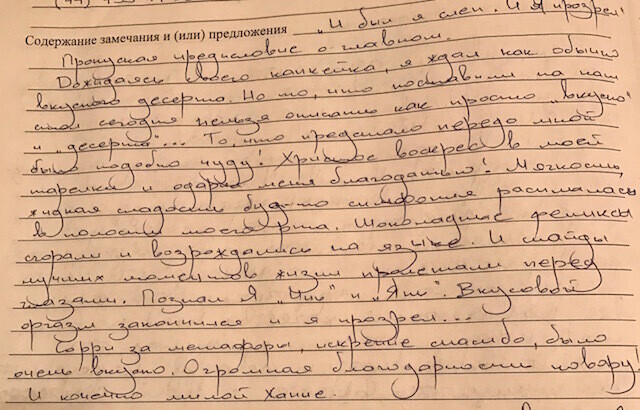 Содержание замечания и (или) предложения „И был я слеп. И я прозрел"
Пропуская предисловие о главном.
Дожидаясь своего капкейка, я ждал как обычно
вкусного десерта. Но то, что поставили на наш
стол сегодня нельзя описать как просто „вкусно"
и „десерт"... То, что предстало передо мной
было подобно чуду! Христос воскрес в моей
тарелке и одарил меня благодатью! Мягкость,
жидкая сладость будто симфония распылалась
в полости моего рта. Шоколадные фениксы
сгорали и возрождались на языке. И слайды
лучших моментов жизни пролетали перед
глазами. Познал Я „Инь" и „Янь". Вкусовой
оргазм закончился и я прозрел...
Сорри за метафоры, искренне спасибо, было
очень вкусно. Огромная благодарность повару!
И конечно милой Ханне.